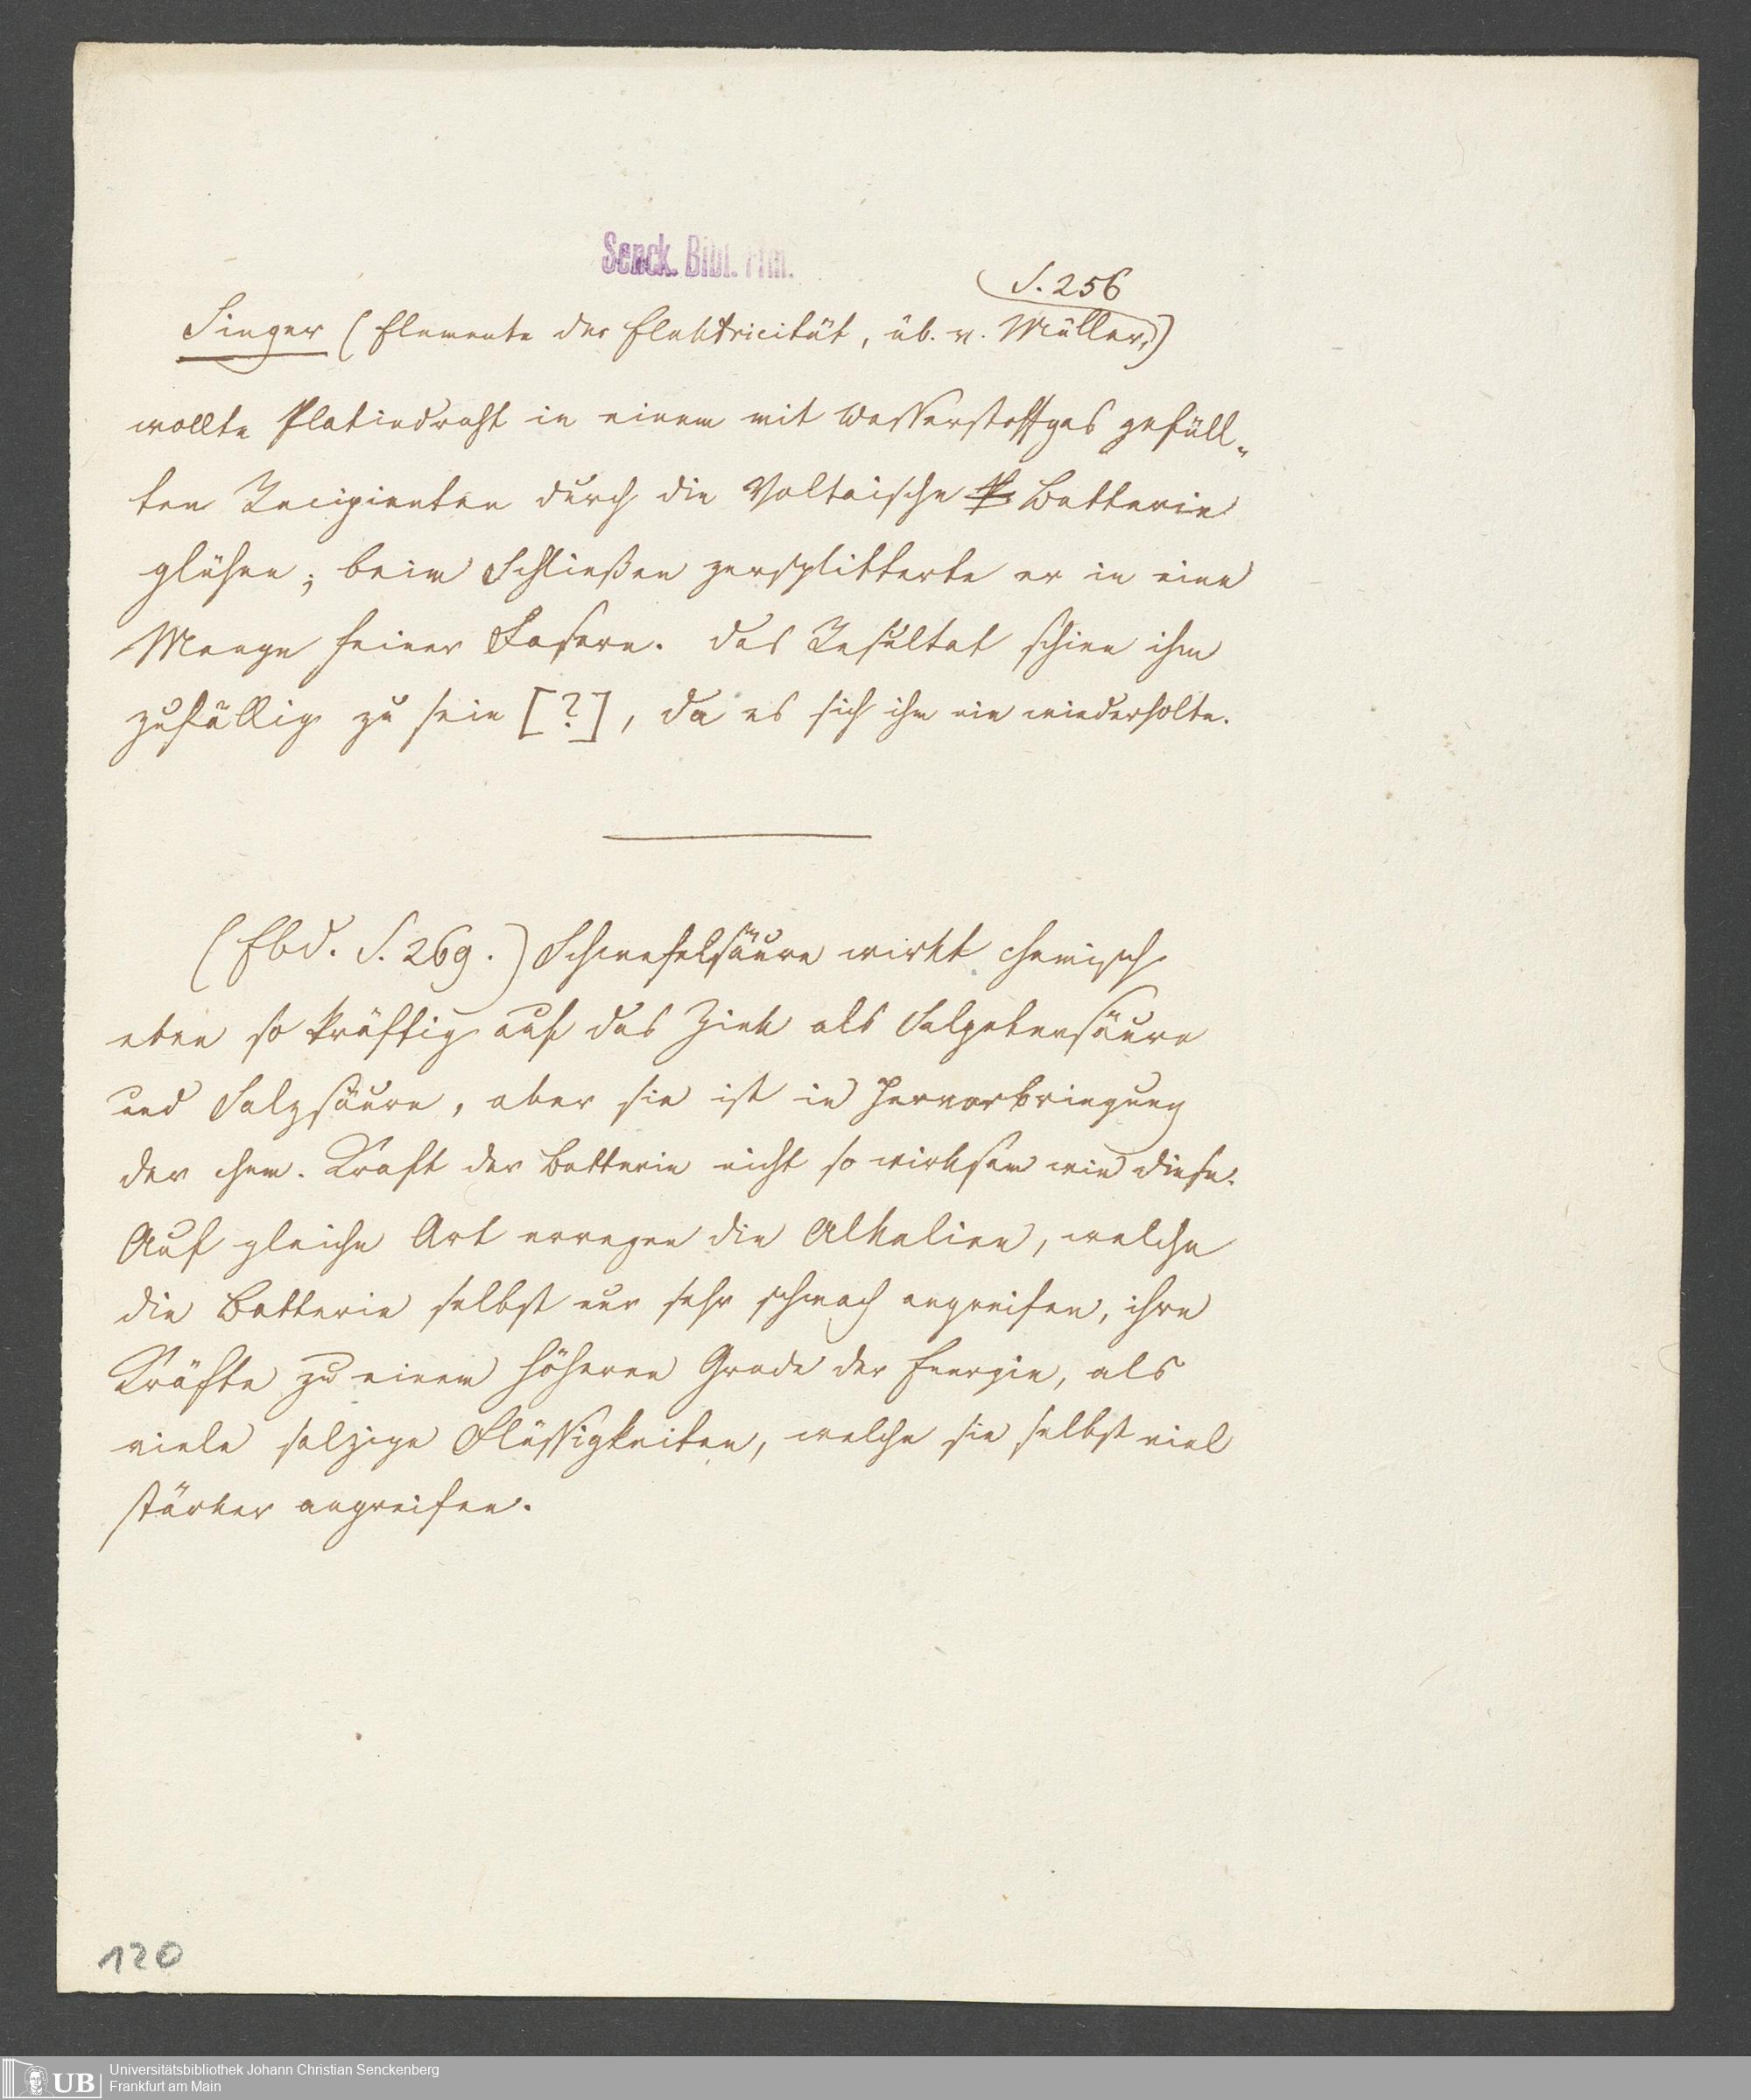 Senck. Bibl. Ffm.
S. 256
Singer (Elemente der Elektricität, üb. v. Müller,)
wollte Platindraht in einem mit Wasserstoffgas gefüll-
ten Recipienten durch die Voltaische Batterie
glühen; beim Schließen zersplitterte er in eine
Menge feiner Fasern. Das Resultat schien ihm
zufällig zu sein [?], da es sich ihm nie wiederholte.
(Ebd. S. 269.) Schwefelsäure wirkt chemisch
eben so kräftig auf das Zink als Salpetersäure
und Salzsäure, aber sie ist in Hervorbringung
der chem. Kraft der Batterie nicht so wirksam wie diese.
Auf gleiche Art erregen die Alkalien, welche
die Batterie selbst nur sehr schwach angreifen, ihre
Kräfte zu einem höheren Grade der Energie, als
viele salzige Flüssigkeiten, welche sie selbst viel
stärker angreifen.
120
UB
Universitätsbibliothek Johann Christian Senckenberg
Frankfurt am Main